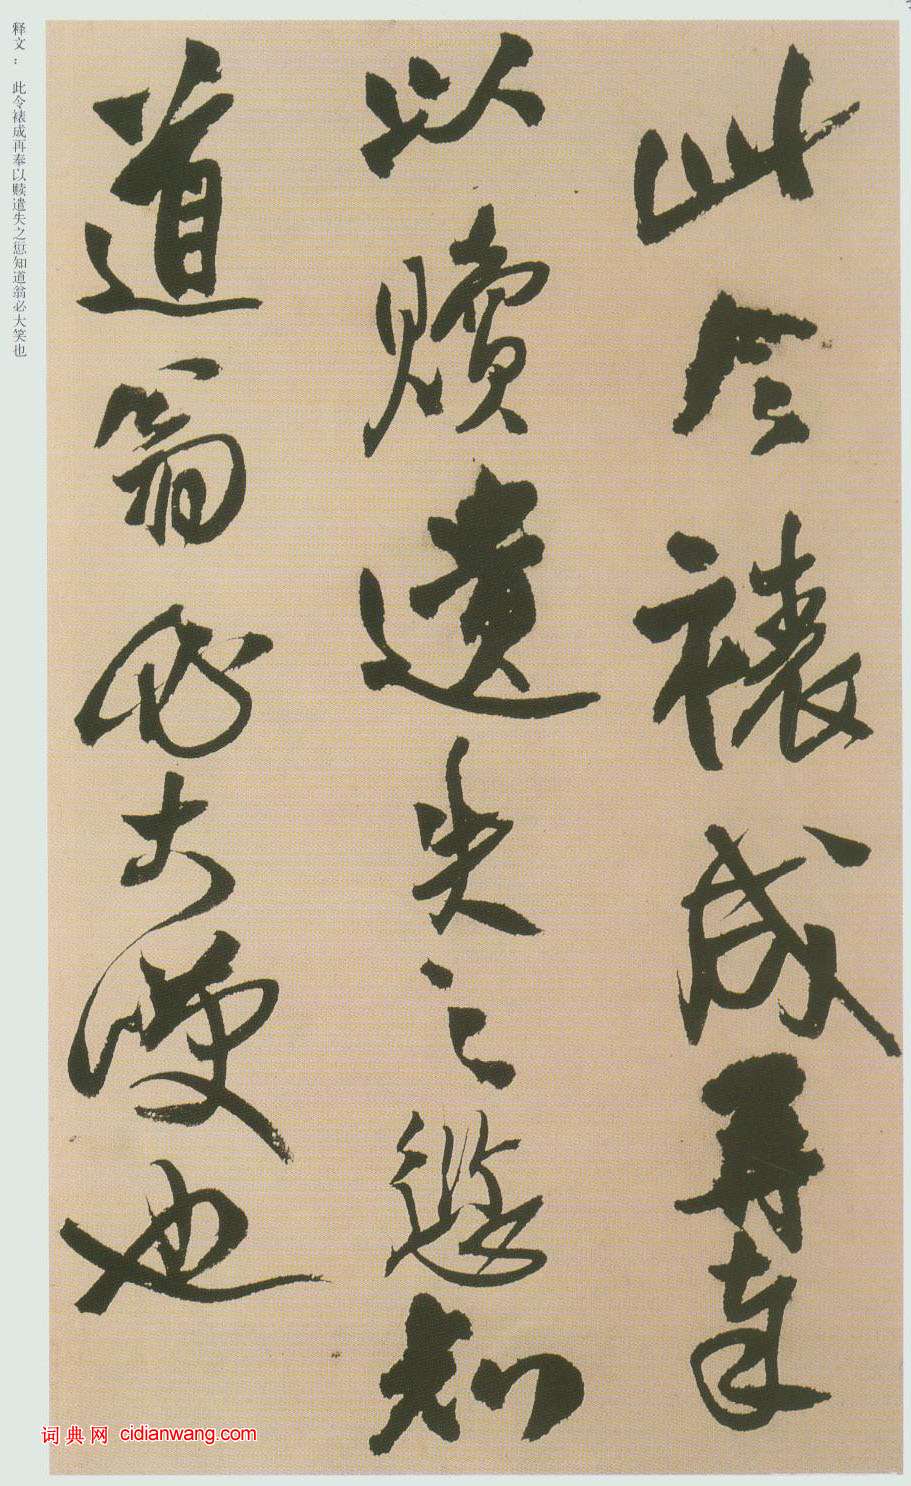 此令裱成再奉
以贖遺失之愆知
道翁必大也
释文： 此令裱成再奉以赎遣失之愆知道翁必大笑也
词典网 cidianwang.com